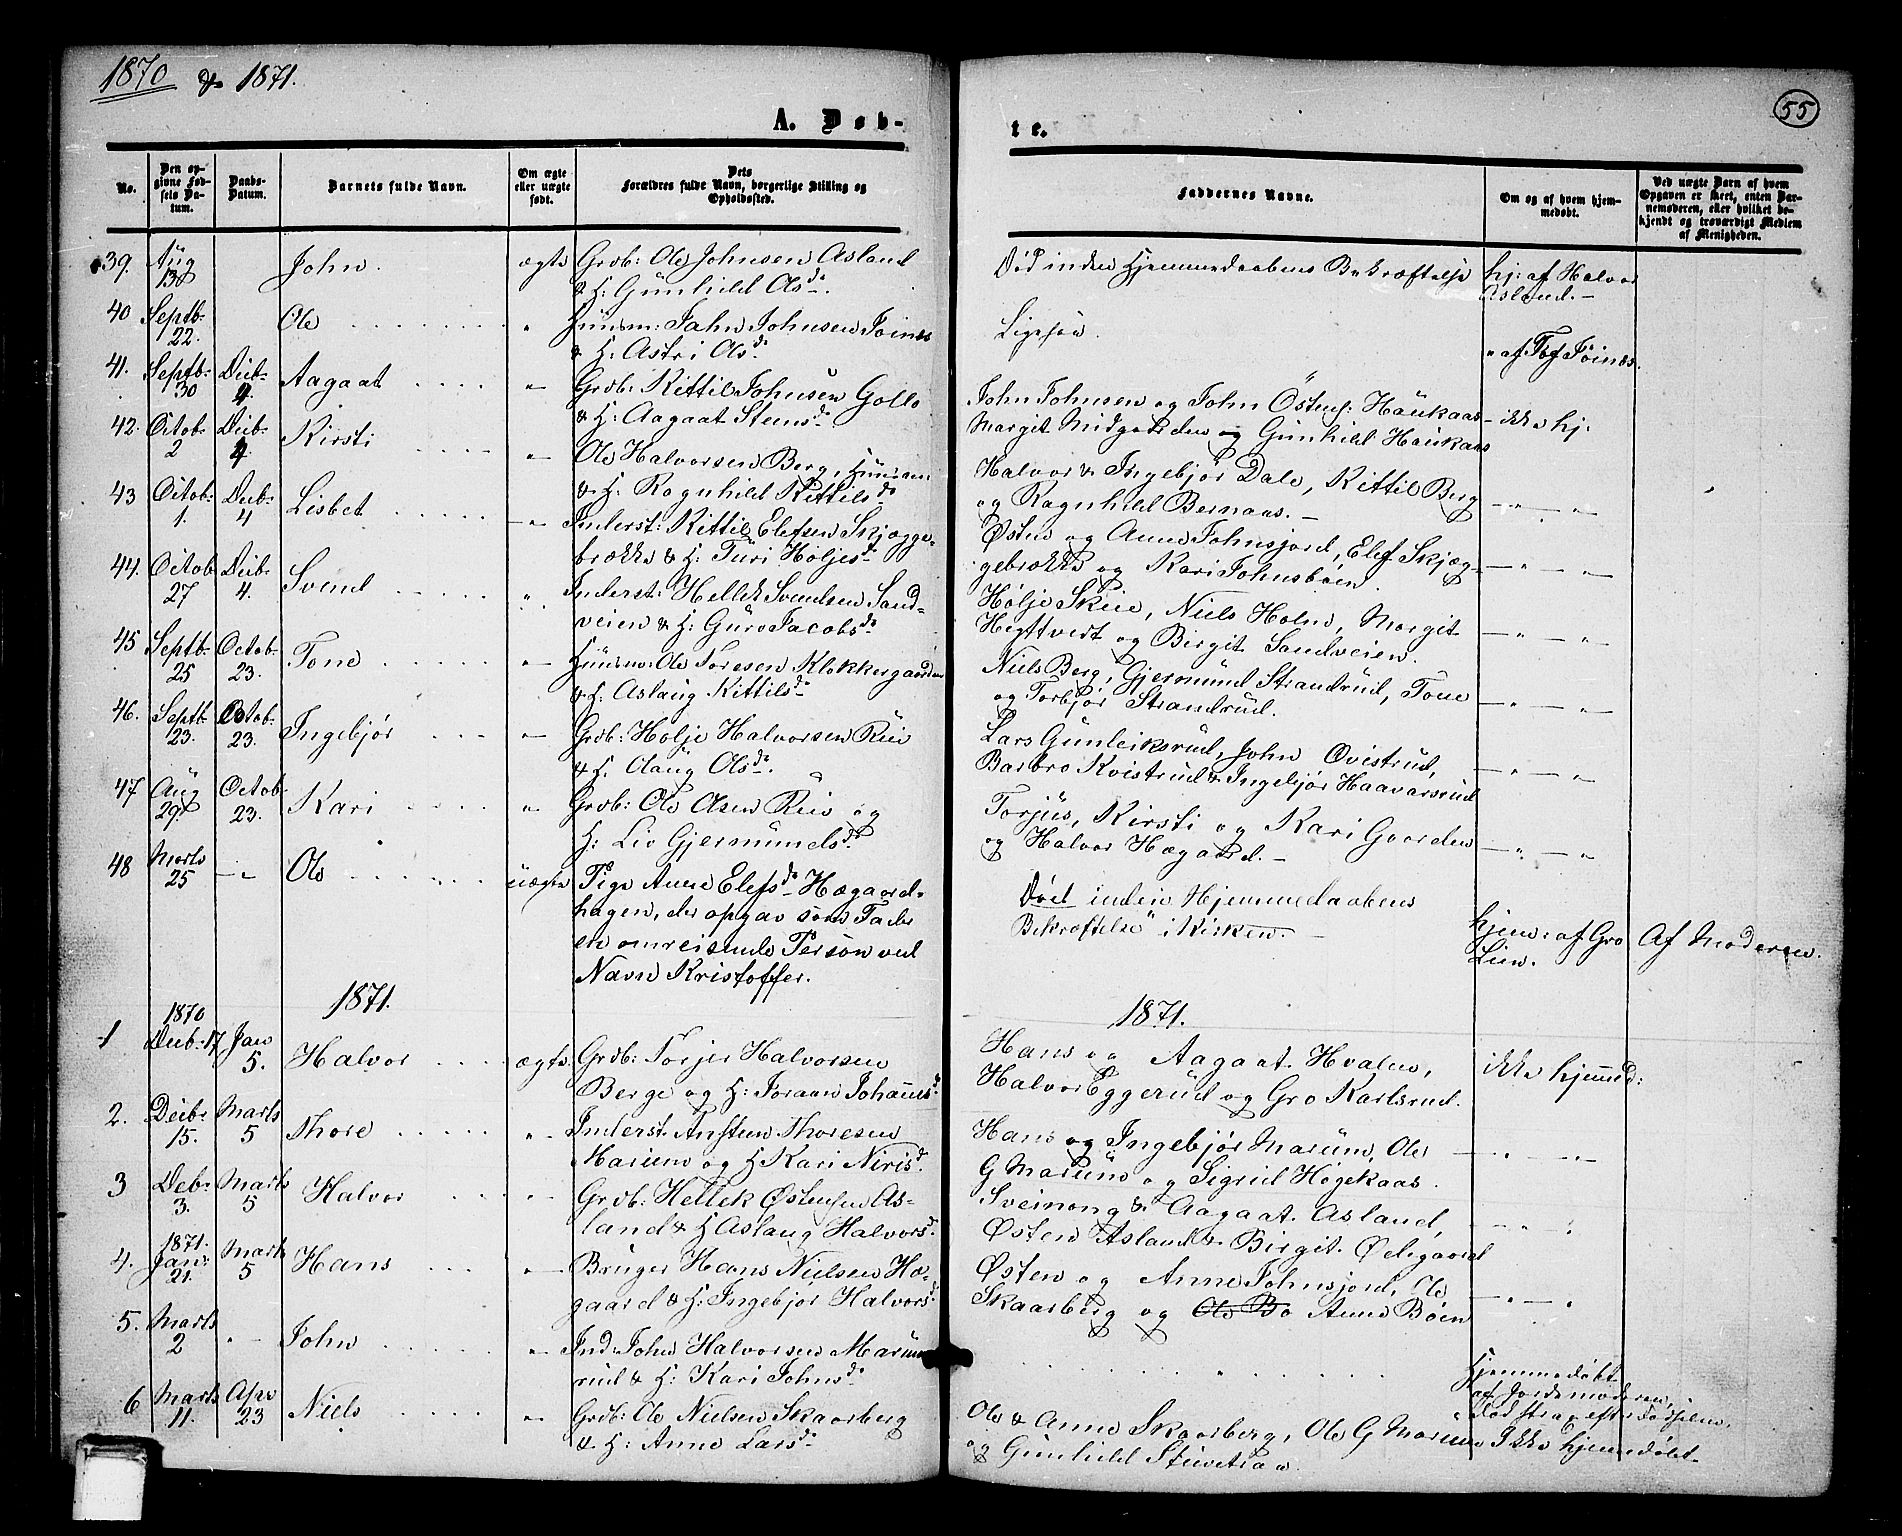 1870 & 1871.
55
A. Døb-
te.
No.
Den op-
givne Fød-
sels Da-
tum.
Daabs-
Datum.
Barnets fulde Navn.
Om ægte
eller uægte
født.
Dets
Forældres fulde Navn, borgerlige Stilling og
Opholdssted.
Faddernes Navne.
Om og af hvem hjem-
medøbt.
Ved uægte Barn af hvem
Opgaven er skeet, enten Bar-
nemoderen, eller hvilket be-
kjendt og troværdigt Medlem
af Menigheden.
39. Aug 13 John. ægte Grdb: Ole Johnsen Asland
& H: Gunhild Olsd.
Død inden Hjemmedaabens Bekræftelse hj: af Halvor
Asland.
40 Septb. 22. Ole " Huusm: Jahn Johnsen Toines
& H: Astri Olsd.
Ligesaa. " af Tof Föines.
41. Septb. 30 Decb. 4. Aagaat " Grdb: Kittil Johnsen Gollo
& H: Aagaat Steensd.
John Johnsen og John Östens: Haukaas
Margit Midgarden og Gunhild Haukaas
ikke hj.
42. Octob. 2 Decb. 4. Kirsti " Ole Halvorsen Berg, Huusm.
& H: Ragnhild Kittilsd.
Halvor & Ingebjør Dale, Kittil Berg
og Ragnhild Bernaas.
43 Octob. 1. Decb. 4 Lisbet " Inderst: Kittil Elefsen Skjægge-
brække & H: Turi Høljesd.
Østen og Anne Johnsjord, Elef Skjæg-
gebrække og Kari Johnsböen.
44. Octob. 27 Decb. 4. Svend " Inderst: Hellek Svendsen Sand-
veien & H: Guro Jacobsd.
Hølje Skeie, Niels Holm, Margit
Hegttvedt og Birgit Sandveien.
45 Septb. 25 Octob. 23. Tone " Huusm: Ole Toresen Klokkergaarden
& H: Aslaug Kittilsd.
Niels Berg, Gjermund Strandrud, Tone
og Torbjør Strandrud.
46. Septb. 23. Octob. 23. Ingebjør " Grdb: Holje Halvorsen Rui
& H. Olaug Olsd.
Lars Gunleiksrud, John Qvistrud,
Barbro Kvistrud & Ingebjør Haavarsrud
47 Aug 29. Octob. 23. Kari " Grdb: Ole Olsen Rui og
H: Liv Gjermundsd.
Torjus, Kirsti og Kari Gvarden
og Halvor Hægaard.
48 Marts 25 Ole uægte Pige Anne Elefsd. Hægaard-
hagen, der opgav som Fader
en omreisende Person ved
Navn Kristoffer.
Død inden Hjemmedaabens
Bekræftelse i Kirken.
hjem: af Gro
Lien.
Af Moderen.
1871.
1871.
1 1870 Decb. 17 Jan 5. Halvor ægte Grdb: Torjer Halvorsen
Berge og H: Joraan Johannesd.
Hans og Aagaat Hvalen,
Halvor Eggerud og Gro Karlsrud.
ikke hjemmed:
2. Decb. 15. Marts 5 Thore " Inderst. Ansten Thoresen
Marium og H Kari Nirisd.
Hans og Ingebjør Marum, Ole
G Marum og Sigrid Høgekaas.
3 Deb. 3. Marts 5 Halvor " Grdb: Hellek Østensen As-
land & H Aslaug Halvorsd.
Sveinong & Aagaat Asland,
Østen Asland & Birgit Ødegaard
4. 1871. Jan. 21. Marts 5 Hans " Bruger Hans Nielsen Hæ-
gaard & H: Ingebjør Halvorsd.
Østen og Anne Johnsjord, Ole
Skaarberg og Ole Bo Anne Böen
5. Marts 2 John " Ind: John Halvorsen Marum-
rud & H: Kari Johnsd.
Hjemmedøbt
af Jordemoderen,
Død strax efter Fødselen.
6 Marts 11. Apr 23 Niels " Grdb: Ole Nielsen Skaarberg
& H: Anne Larsd.
Ole & Anne Skaarberg, Ole G Marum
og Gunhild
Ikke hjemmedøbt